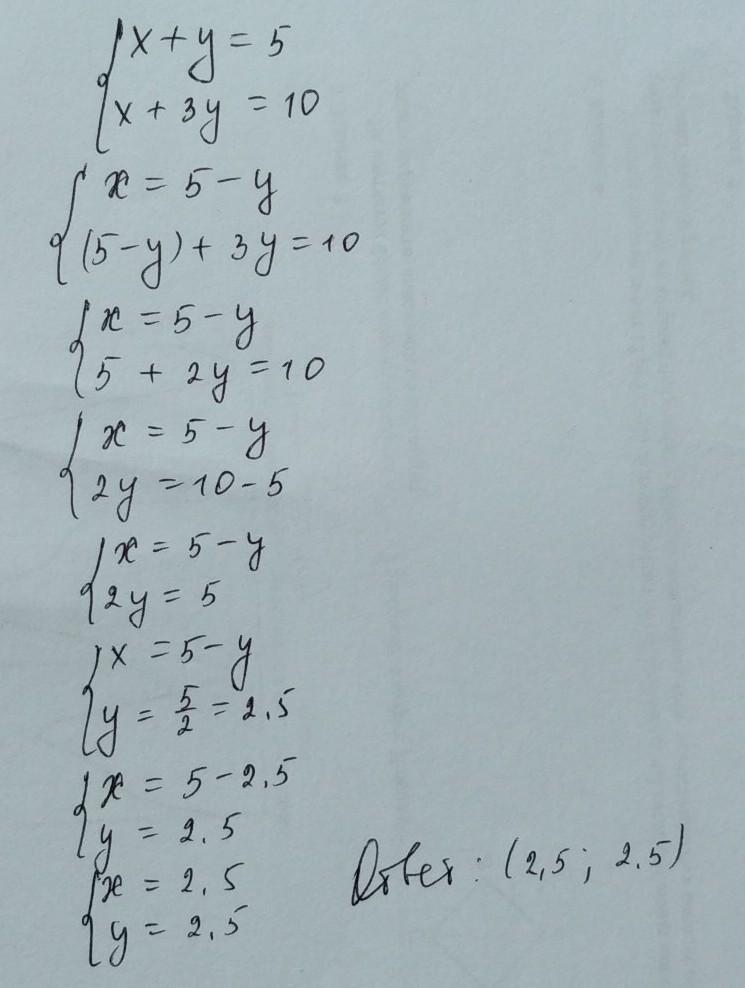 x + y = 5
x + 3y = 10
x = 5 - y
(5 - y) + 3y = 10
x = 5 - y
5 + 2y = 10
x = 5 - y
2y = 10 - 5
x = 5 - y
2y = 5
x = 5 - y
y = 5/2 = 2.5
x = 5 - 2.5
y = 2.5
x = 2.5
y = 2.5
Ответ: (2,5; 2.5)